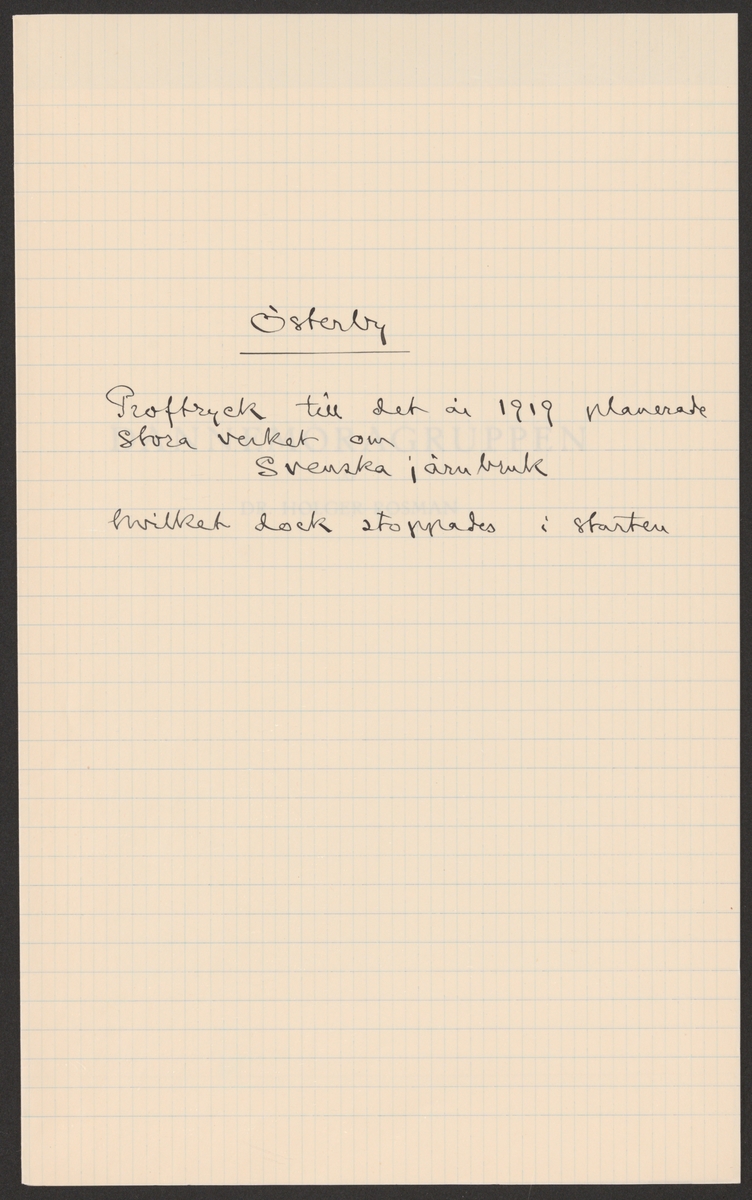 Österby
Proftryck till det år 1919 planerade
stora verket om
Svenska järnbruk
hvilket dock stoppades i starten